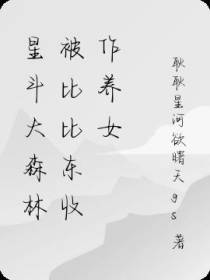 星斗大森林
被比比东收
作养女
耿耿星河欲曙天gs 著